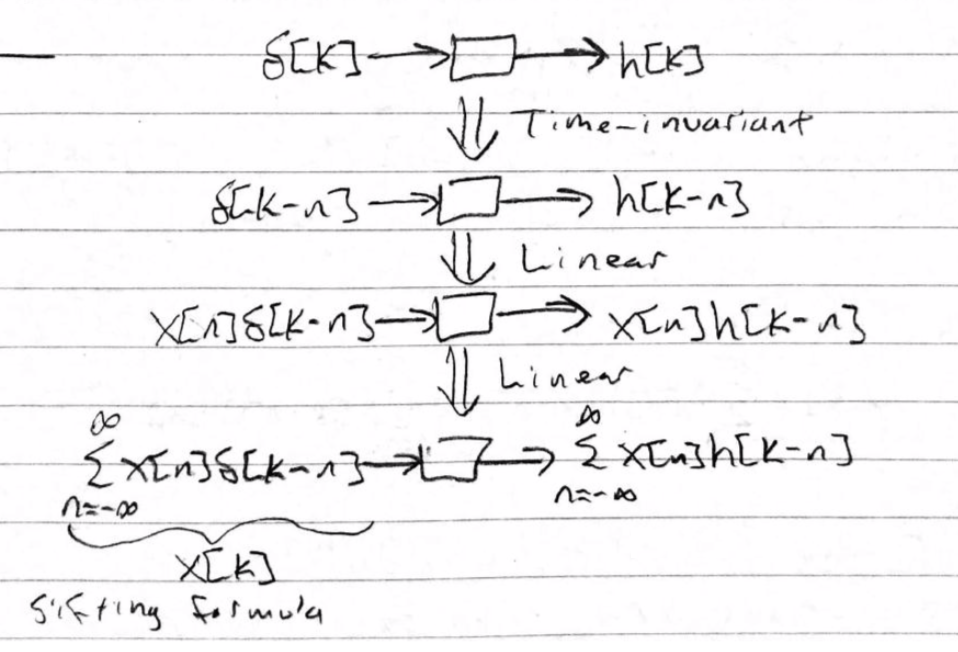 δ[k] → □ → h[k]
⇓ Time-invariant
δ[k-n] → □ → h[k-n]
⇓ Linear
x[n]δ[k-n] → □ → x[n]h[k-n]
⇓ Linear
∞ ∞
Σ x[n]δ[k-n] → □ → Σ x[n]h[k-n]
n=-∞ n=-∞
x[k]
Sifting formula